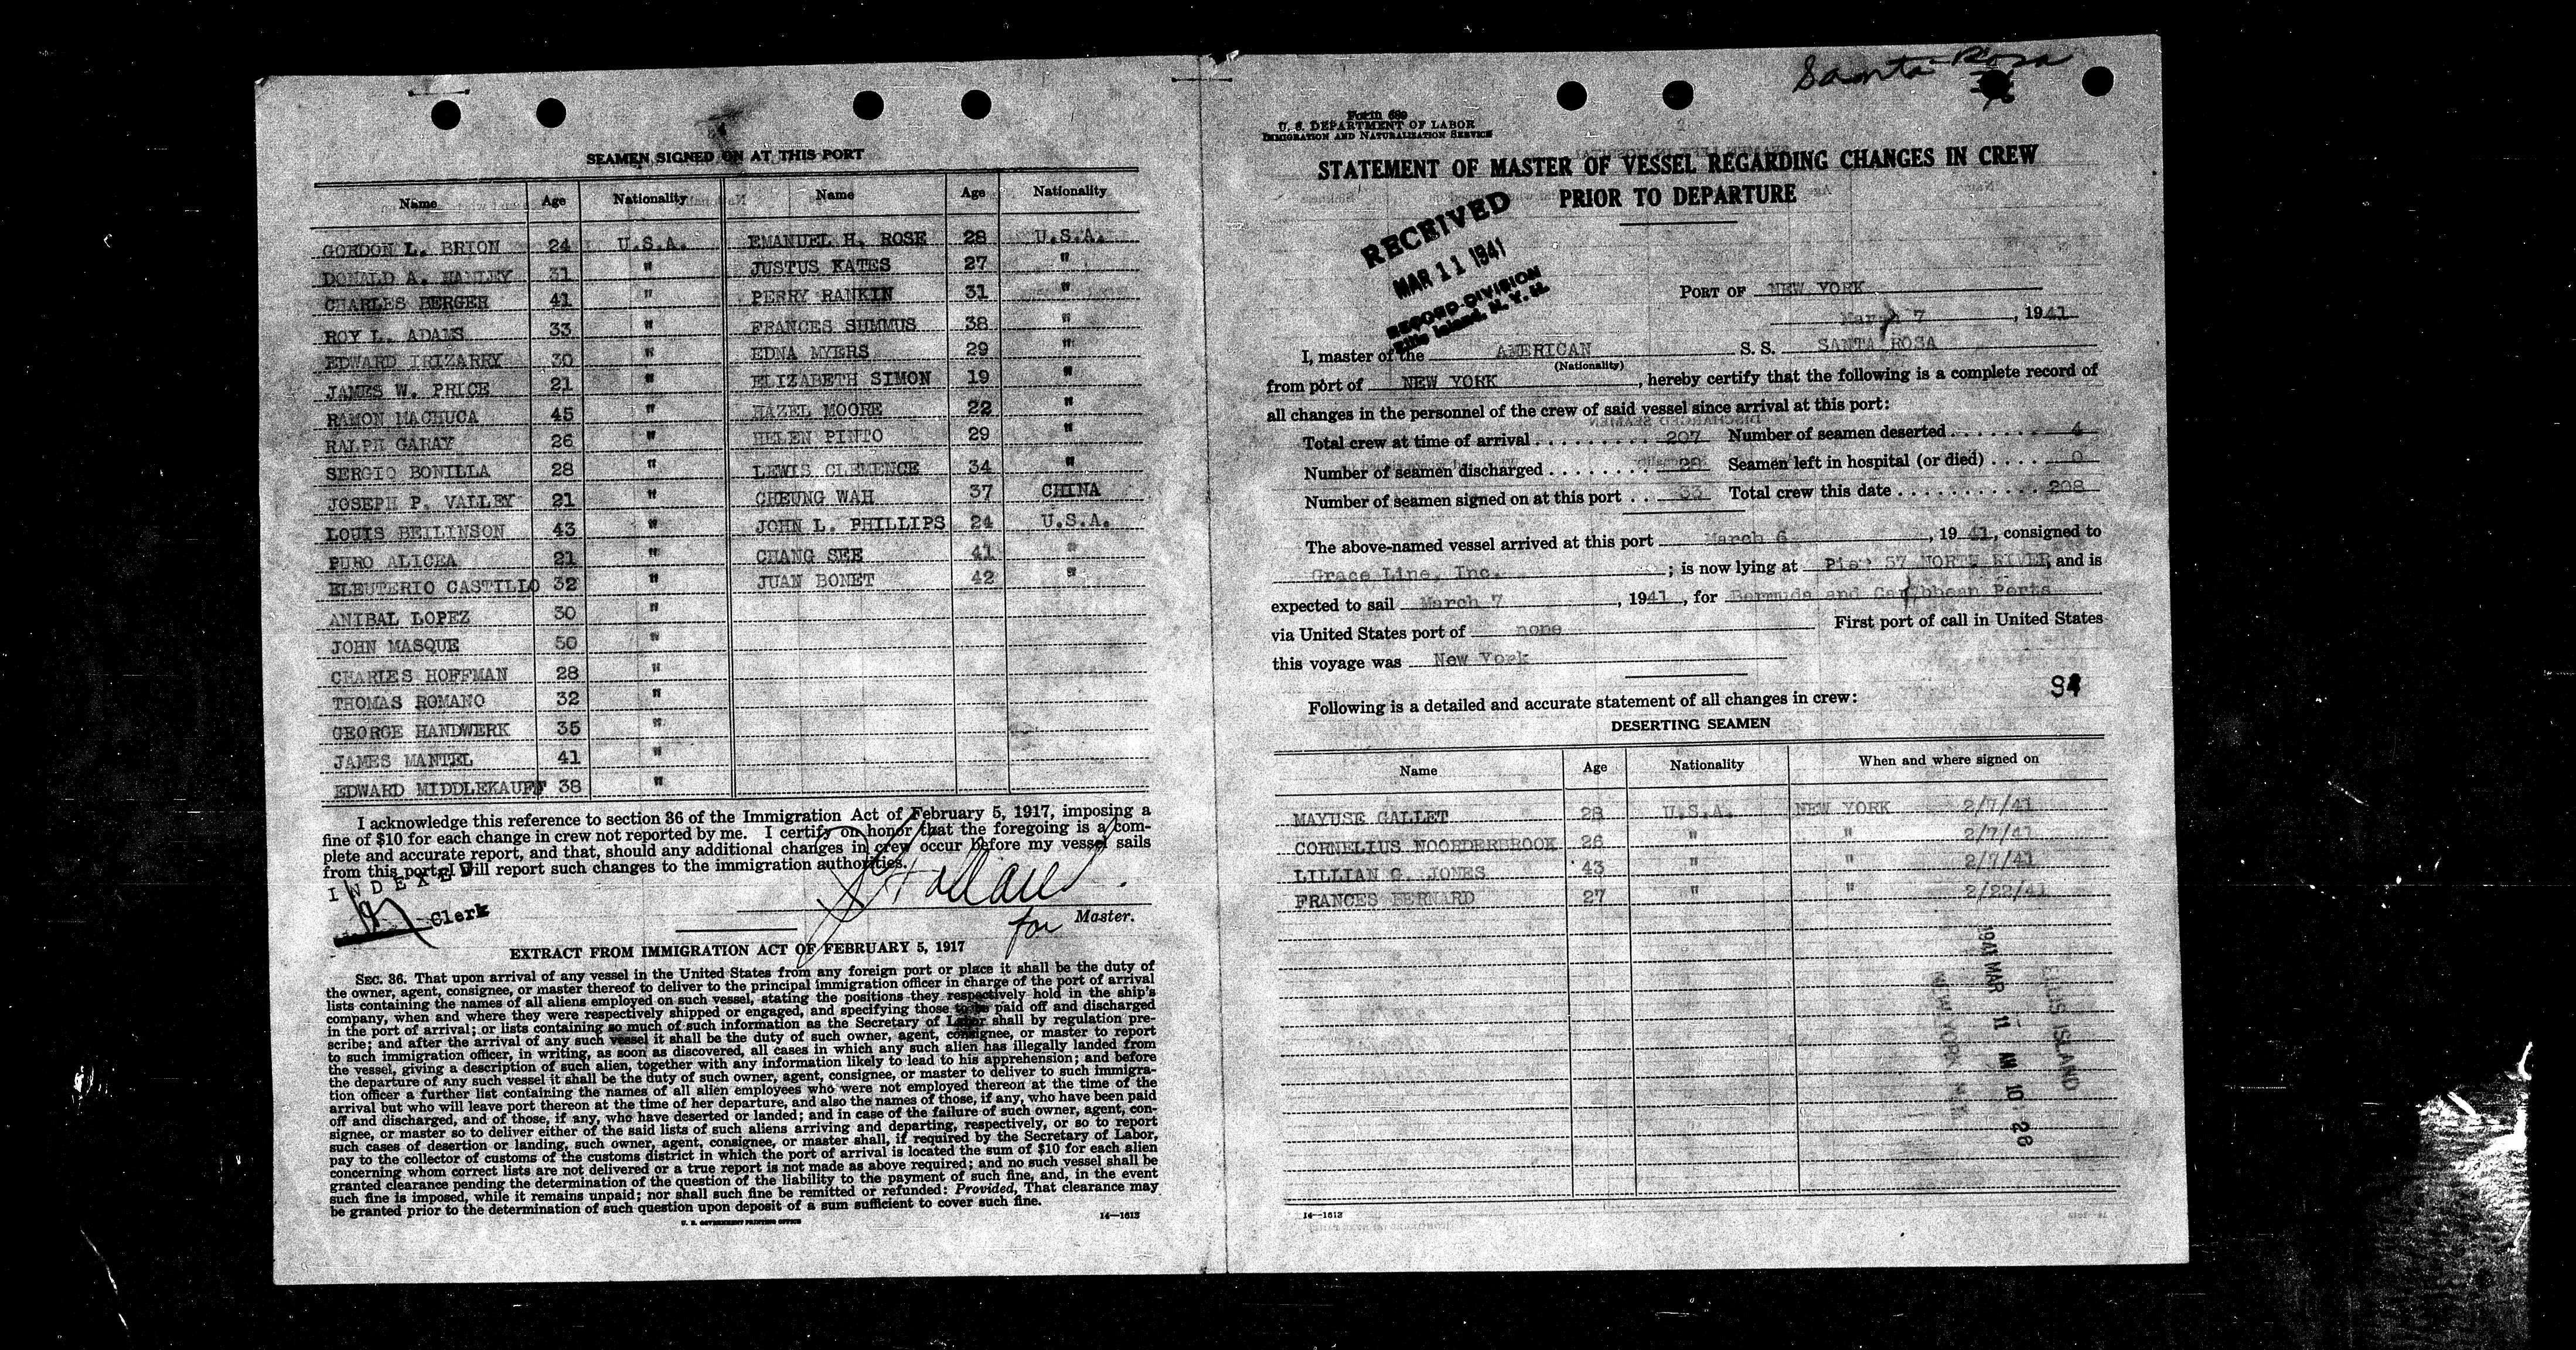 SEAMEN SIGNED ON AT THIS PORT
Name Age Nationality Name Age Nationality
GORDON L. BRION 24 U.S.A. EMANUEL H. ROSE 28 U.S.A.
DONALD A. HANLEY 31 " JUSTUS KATES 27 "
CHARLES BERGER 41 " PERRY RANKIN 31 "
ROY L. ADAMS 33 " FRANCES SUMMUS 38 "
EDWARD IRIZARRY 30 " EDNA MYERS 29 "
JAMES W. PRICE 21 " ELIZABETH SIMON 19 "
RAMON MACHUCA 45 " HAZEL MOORE 22 "
RALPH GARAY 26 " HELEN PINTO 29 "
SERGIO BONILLA 28 " LEWIS CLEMENCE 34 "
JOSEPH P. VALLEY 21 " CHEUNG WAH 37 CHINA
LOUIS BEILINSON 43 " JOHN L. PHILLIPS 24 U.S.A.
PURO ALICEA 21 " CHANG SEE 41 "
ELEUTERIO CASTILLO 32 " JUAN BONET 42 "
ANIBAL LOPEZ 30 "
JOHN MASQUE 50 "
CHARLES HOFFMAN 28 "
THOMAS ROMANO 32 "
GEORGE HANDWERK 35 "
JAMES MANTEL 41 "
EDWARD MIDDLEKAUFF 38 "
I acknowledge this reference to section 36 of the Immigration Act of February 5, 1917, imposing a
fine of $10 for each change in crew not reported by me. I certify on honor that the foregoing is a com-
plete and accurate report, and that, should any additional changes in crew occur before my vessel sails
from this port, I will report such changes to the immigration authorities.
INDEXED
Clerk
for Master.
EXTRACT FROM IMMIGRATION ACT OF FEBRUARY 5, 1917
SEC. 36. That upon arrival of any vessel in the United States from any foreign port or place it shall be the duty of
the owner, agent, consignee, or master thereof to deliver to the principal immigration officer in charge of the port of arrival
lists containing the names of all aliens employed on such vessel, stating the positions they respectively hold in the ship's
company, when and where they were respectively shipped or engaged, and specifying those to be paid off and discharged
in the port of arrival; or lists containing so much of such information as the Secretary of Labor shall by regulation pre-
scribe; and after the arrival of any such vessel it shall be the duty of such owner, agent, consignee, or master to report
to such immigration officer, in writing, as soon as discovered, all cases in which any such alien has illegally landed from
the vessel, giving a description of such alien, together with any information likely to lead to his apprehension; and before
the departure of any such vessel it shall be the duty of such owner, agent, consignee, or master to deliver to such immigra-
tion officer a further list containing the names of all alien employees who were not employed thereon at the time of the
arrival but who will leave port thereon at the time of her departure, and also the names of those, if any, who have been paid
off and discharged, and of those, if any, who have deserted or landed; and in case of the failure of such owner, agent, con-
signee, or master so to deliver either of the said lists of such aliens arriving and departing, respectively, or so to report
such cases of desertion or landing, such owner, agent, consignee, or master shall, if required by the Secretary of Labor,
pay to the collector of customs of the customs district in which the port of arrival is located the sum of $10 for each alien
concerning whom correct lists are not delivered or a true report is not made as above required; and no such vessel shall be
granted clearance pending the determination of the question of the liability to the payment of such fine, and, in the event
such fine is imposed, while it remains unpaid; nor shall such fine be remitted or refunded: Provided, That clearance may
be granted prior to the determination of such question upon deposit of a sum sufficient to cover such fine.
U. S. GOVERNMENT PRINTING OFFICE 14—1613
Santa Rosa
Form 689
U. S. DEPARTMENT OF LABOR
IMMIGRATION AND NATURALIZATION SERVICE
STATEMENT OF MASTER OF VESSEL REGARDING CHANGES IN CREW
PRIOR TO DEPARTURE
RECEIVED
MAR 11 1941
RECORD DIVISION
Ellis Island, N. Y. H.
PORT OF NEW YORK
March 7, 1941
I, master of the AMERICAN S. S. SANTA ROSA
(Nationality)
from port of NEW YORK, hereby certify that the following is a complete record of
all changes in the personnel of the crew of said vessel since arrival at this port:
Total crew at time of arrival 207 Number of seamen deserted 4
Number of seamen discharged 28 Seamen left in hospital (or died) 0
Number of seamen signed on at this port 33 Total crew this date 208
The above-named vessel arrived at this port March 6, 1941, consigned to
Grace Line, Inc. ; is now lying at Pier 57 NORTH RIVER, and is
expected to sail March 7, 1941, for Bermuda and Caribbean Ports
via United States port of none First port of call in United States
this voyage was New York
94
Following is a detailed and accurate statement of all changes in crew:
DESERTING SEAMEN
Name Age Nationality When and where signed on
MAYUSE GALLET 28 U.S.A. NEW YORK 2/7/41
CORNELIUS NOORDERBROOK 26 " " 2/7/41
LILLIAN G. JONES 43 " " 2/7/41
FRANCES BERNARD 27 " " 2/22/41
1941 MAR 11 AM 10:26
ELLIS ISLAND
NEW YORK
14—1613